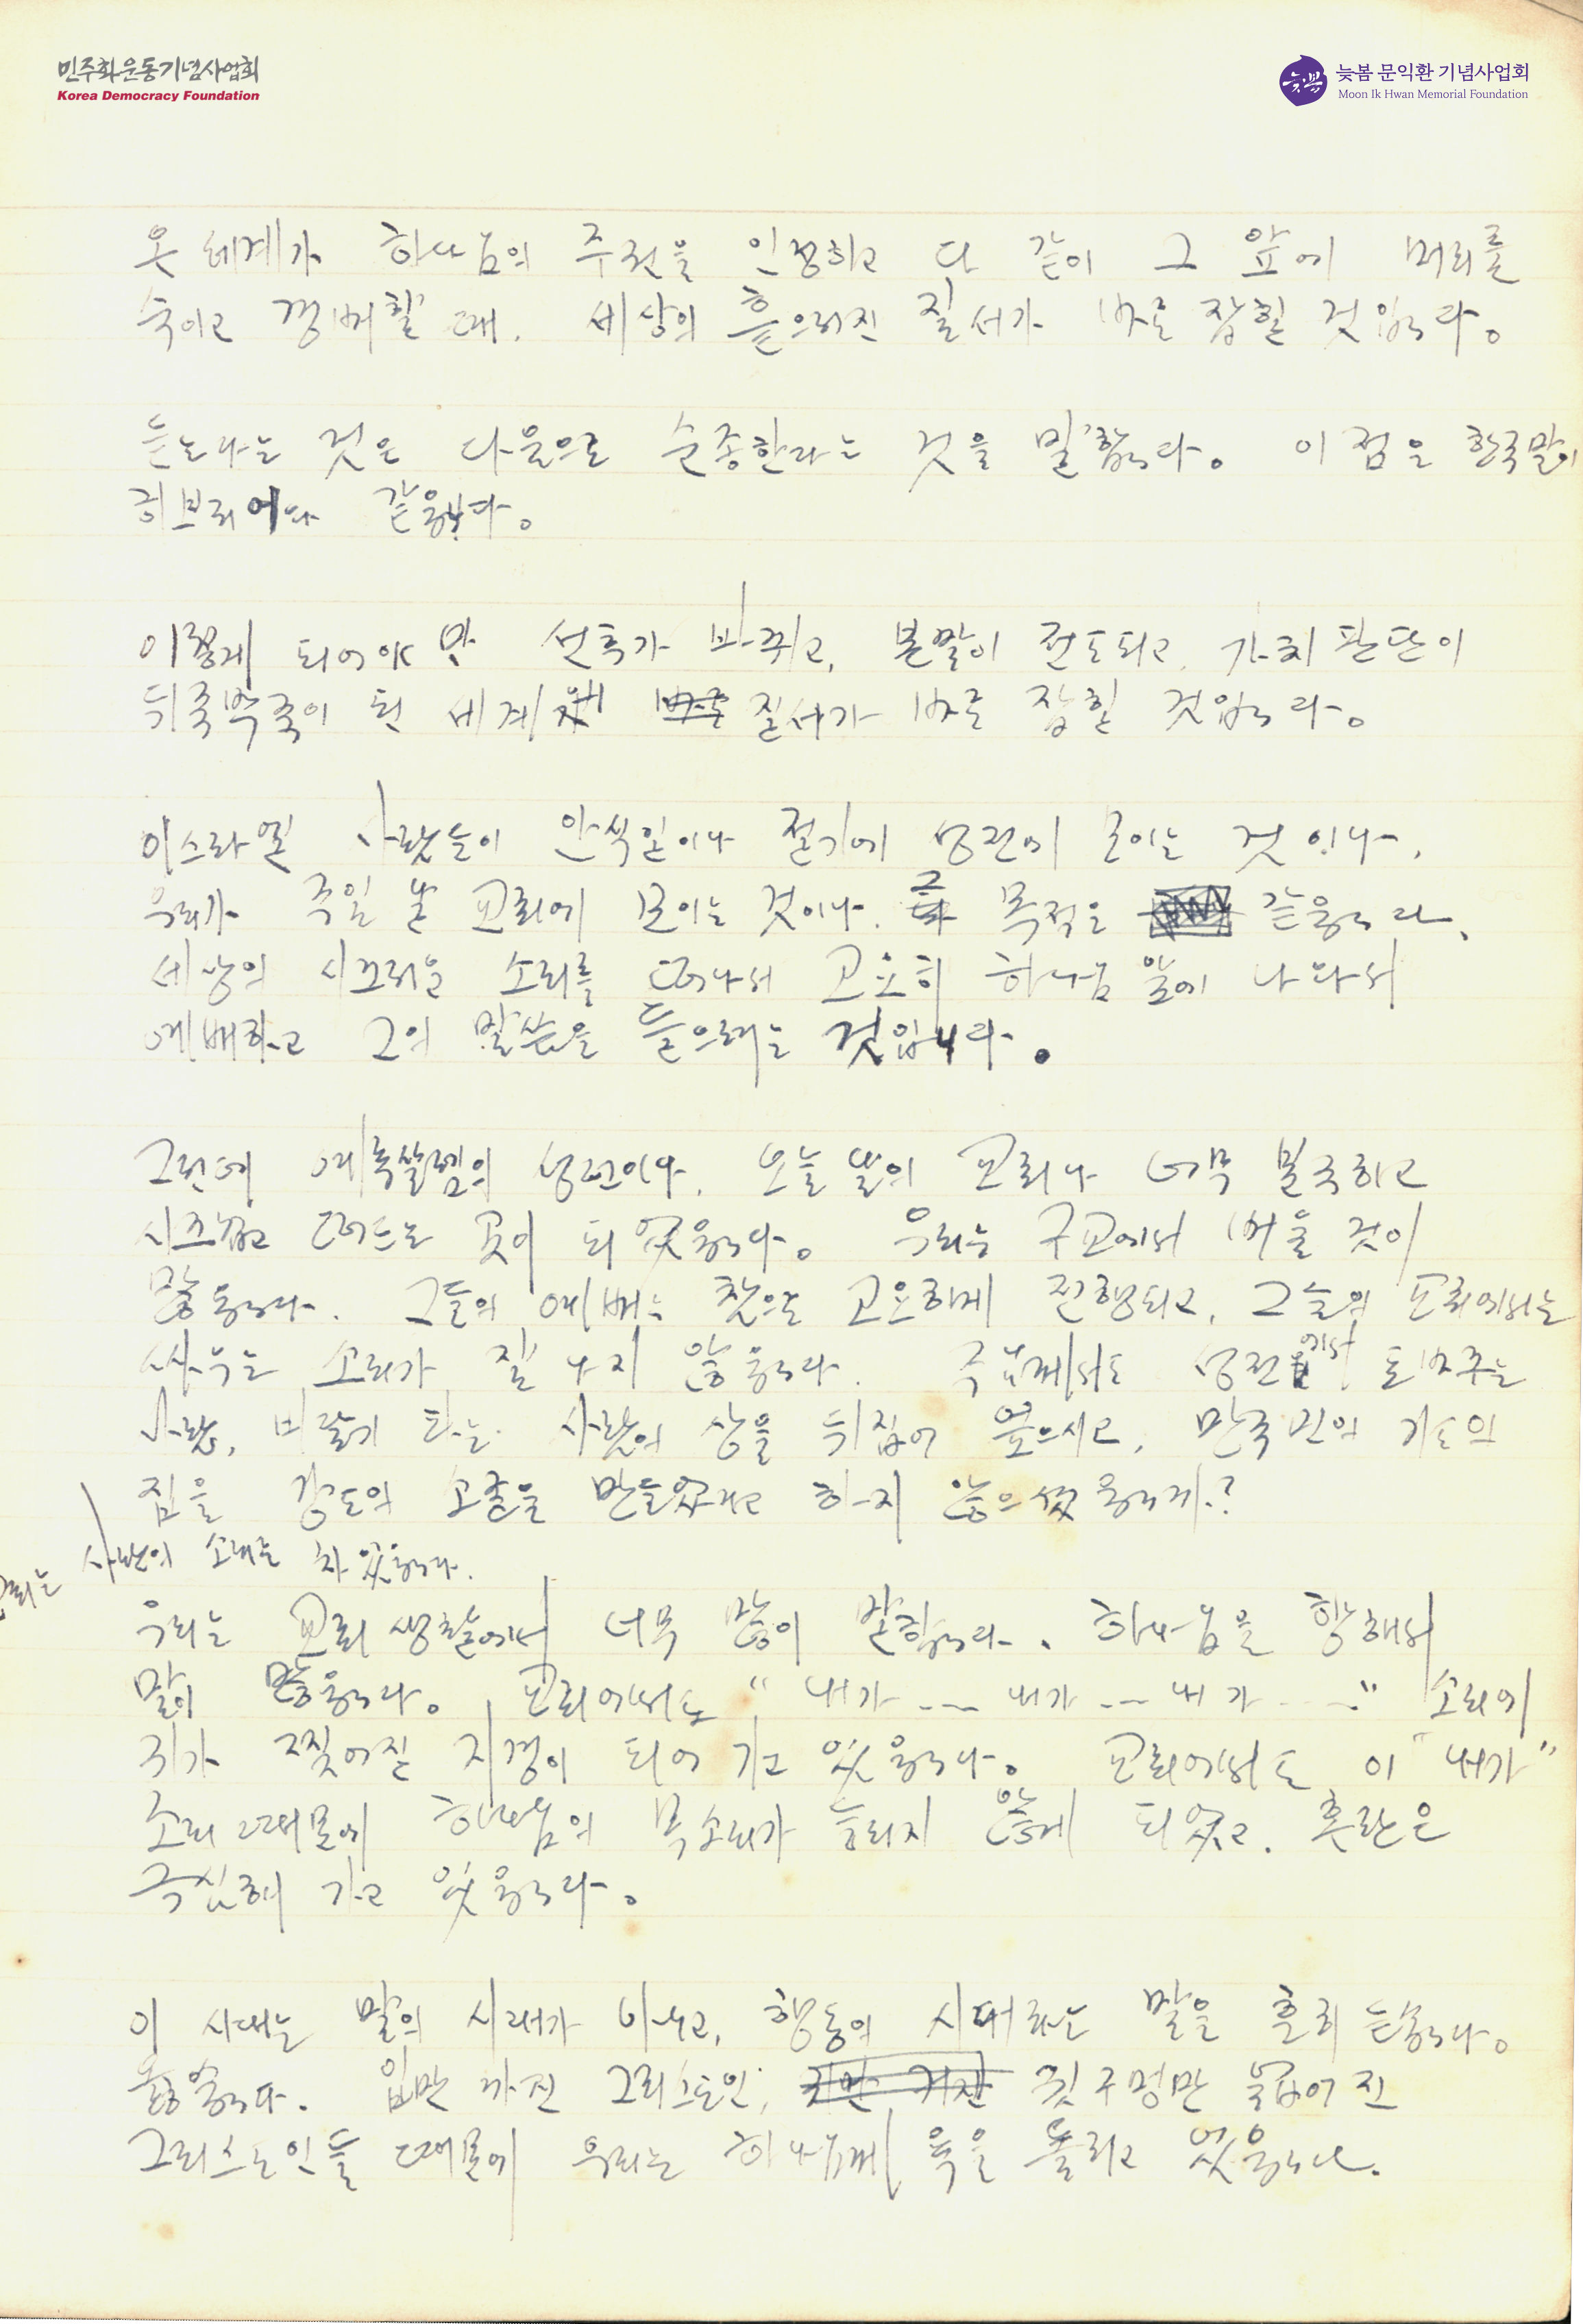 민주화운동기념사업회
Korea Democracy Foundation
늦봄 문익환 기념사업회
Moon Ik Hwan Memorial Foundation
늦봄
온 세계가 하나님의 주권을 인정하고 다 같이 그 앞에 머리를
숙이고 경배할 때, 세상의 흩으러진 질서가 바로 잡힐 것입니다.
듣는다는 것은 다음으로 순종한다는 것을 말합니다. 이 점은 한국말이
히브리어나 같읍니다.
이렇게 되어야만 선후가 바뀌고, 본말이 전도되고, 가치판단이
뒤죽박죽이 된 세계에 질서가 바로 잡힐 것입니다.
이스라엘 사람들이 안식일이나 절기에 성전에 모이는 것이나,
우리가 주일날 교회에 모이는 것이나, 그 목적은 같읍니다.
세상의 시끄러운 소리를 떠나서 고요히 하나님 앞에 나와서
예배하고 그의 말씀을 들으려는 것입니다.
그런데 예루살렘의 성전이나, 오늘날의 교회나 너무 불국하고
시끄럽고 떠드는 곳이 되었읍니다. 우리는 구교에서 배울 것이
많읍니다. 그들의 예배는 참으로 고요하게 진행되고, 그들의 교회에서는
싸우는 소리가 잘 나지 않읍니다. 주님께서도 성전에서 돈 바꾸는
사람, 비둘기 파는 사람의 상을 뒤집어 엎으시고, 만국민의 기도의
집을 강도의 소굴을 만들었다고 하지 않으셨읍니까?
교회는 사람의 소리로 차 있읍니다.
우리는 교회 생활에서 너무 많이 말합니다. 하나님을 향해서
말이 많읍니다. 교회에서도 "내가 --- 내가 --- 내가 ---" 소리에
귀가 찢어질 지경이 되어 가고 있읍니다. 교회에서도 이 "내가"
소리 때문에 하나님의 목소리가 들리지 않게 되었고, 혼란은
극심해 가고 있읍니다.
이 시대는 말의 시대가 아니고, 행동의 시대라는 말을 흔히 듣습니다.
옳습니다. 입만 가진 그리스도인, 귓구멍만 뚫어진
그리스도인들 때문에 우리는 하나님께 욕을 돌리고 있읍니다.